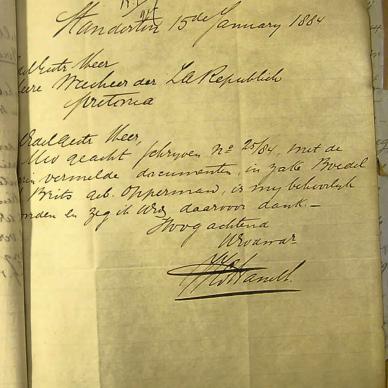 Standerton 15de January 1884
EdelGestr Heer
Weesheer der Z.A. Republiek
Pretoria
EdelGestr Heer,
Uw geacht schryven No 25/84 met de
vermelde documenten, in zake Boedel
Brits geb. Opperman, is my behoorlijk
en zeg ik UEd daarvoor dank -
Hoogachtend
UEd dwar